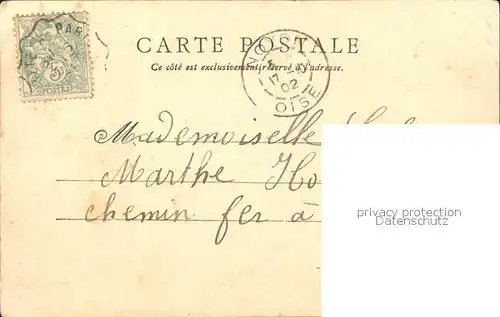 CARTE POSTALE
Ce côté est exclusivement réservé à l'adresse.
PAR
5c
POSTES
17
02
OISE
Mademoiselle
Marthe Ho
chemin fer à
privacy protection
Datenschutz